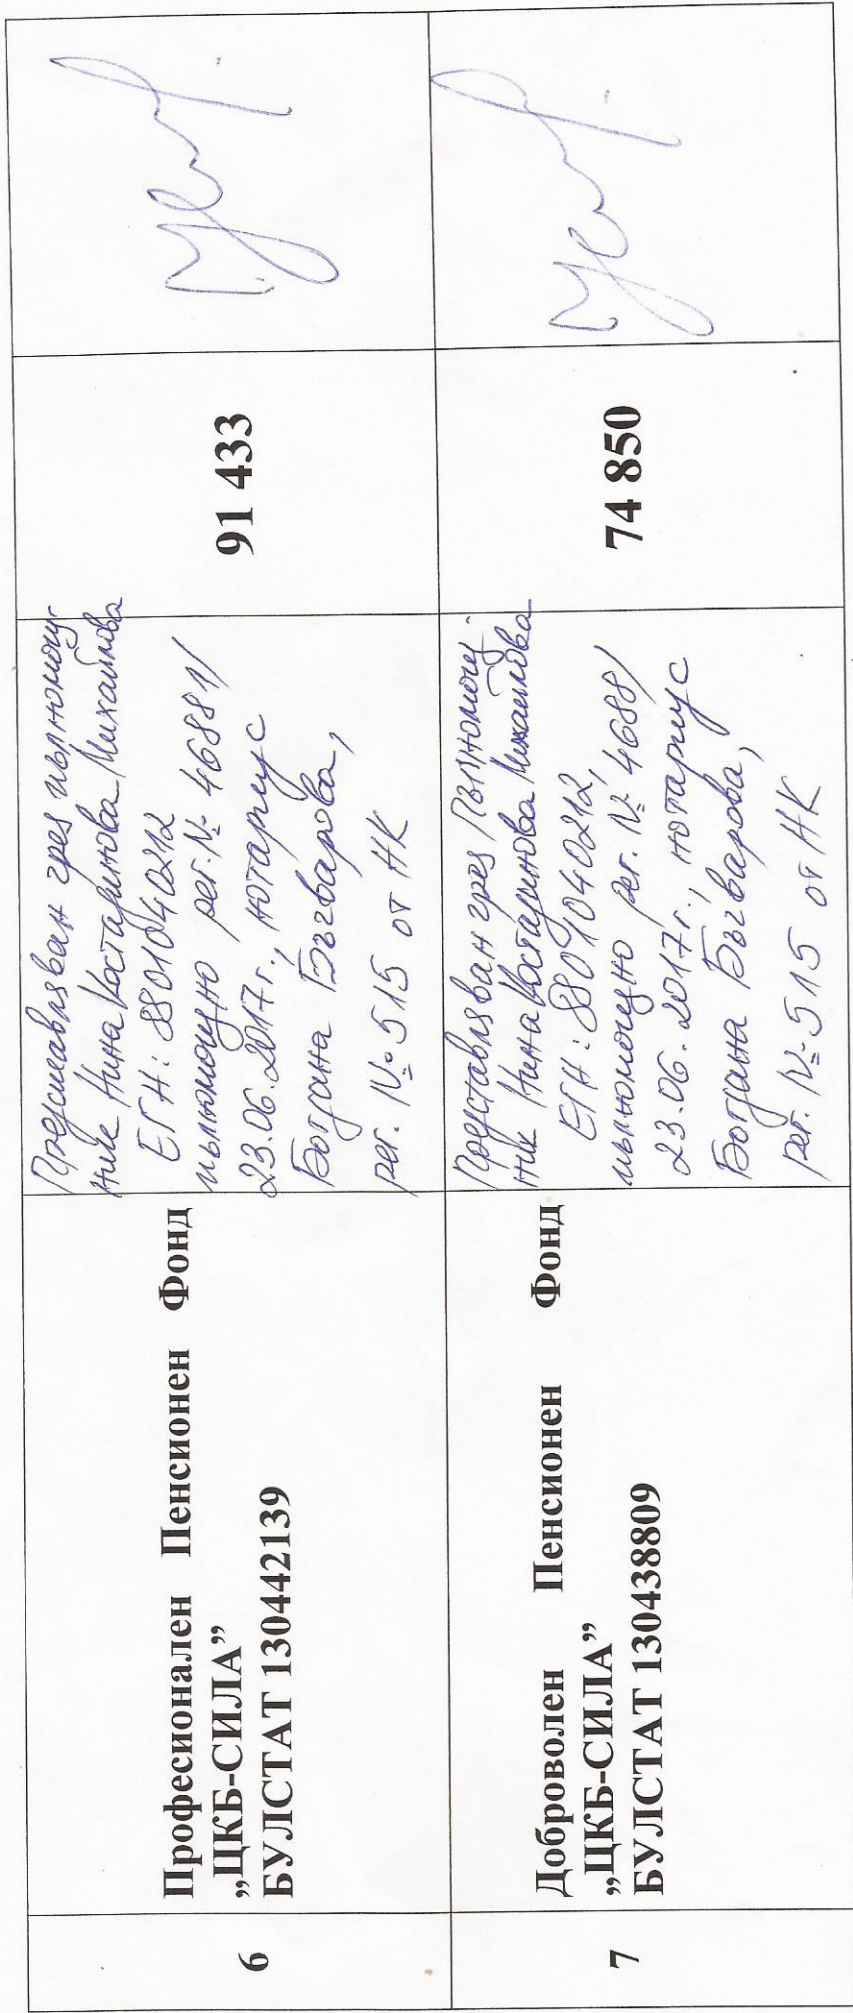 6
Професионален Пенсионен Фонд
„ЦКБ-СИЛА”
БУЛСТАТ 130442139
Представляван чрез пълномощ-
ник Нина Костадинова Михайлова
ЕГН: 8801040212
пълномощно рег. № 4688/
23.06.2017г., нотариус
Богдана Бъзварова,
рег. № 515 от НК
91 433
7
Доброволен Пенсионен Фонд
„ЦКБ-СИЛА”
БУЛСТАТ 130438809
Представляван чрез пълномощ-
ник Нина Костадинова Михайлова
ЕГН: 8801040212,
пълномощно рег. № 4688/
23.06.2017г., нотариус
Богдана Бъзварова,
рег. № 515 от НК
74 850